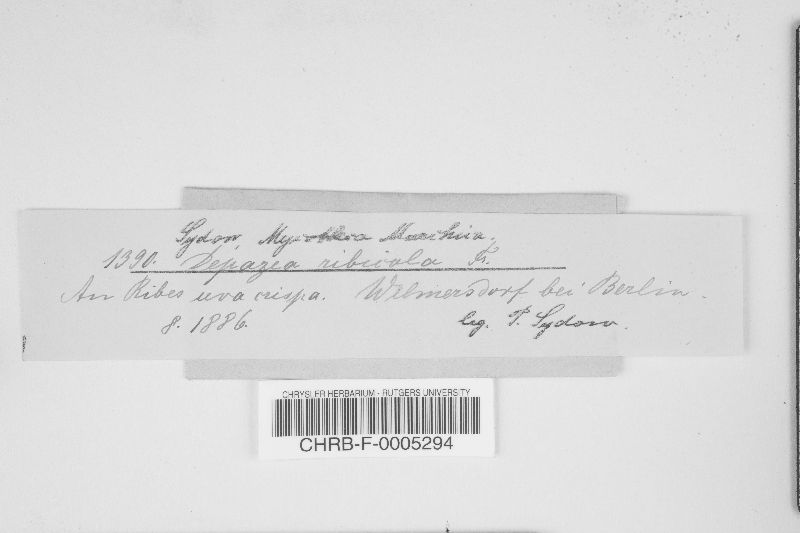 Sydow, Mycotheca Marchica.
1390. Depazea ribicola Fr.
An Ribes uva crispa. Wilmersdorf bei Berlin.
8. 1886. leg. P. Sydow.
CHRYSLER HERBARIUM - RUTGERS UNIVERSITY
CHRB-F-0005294